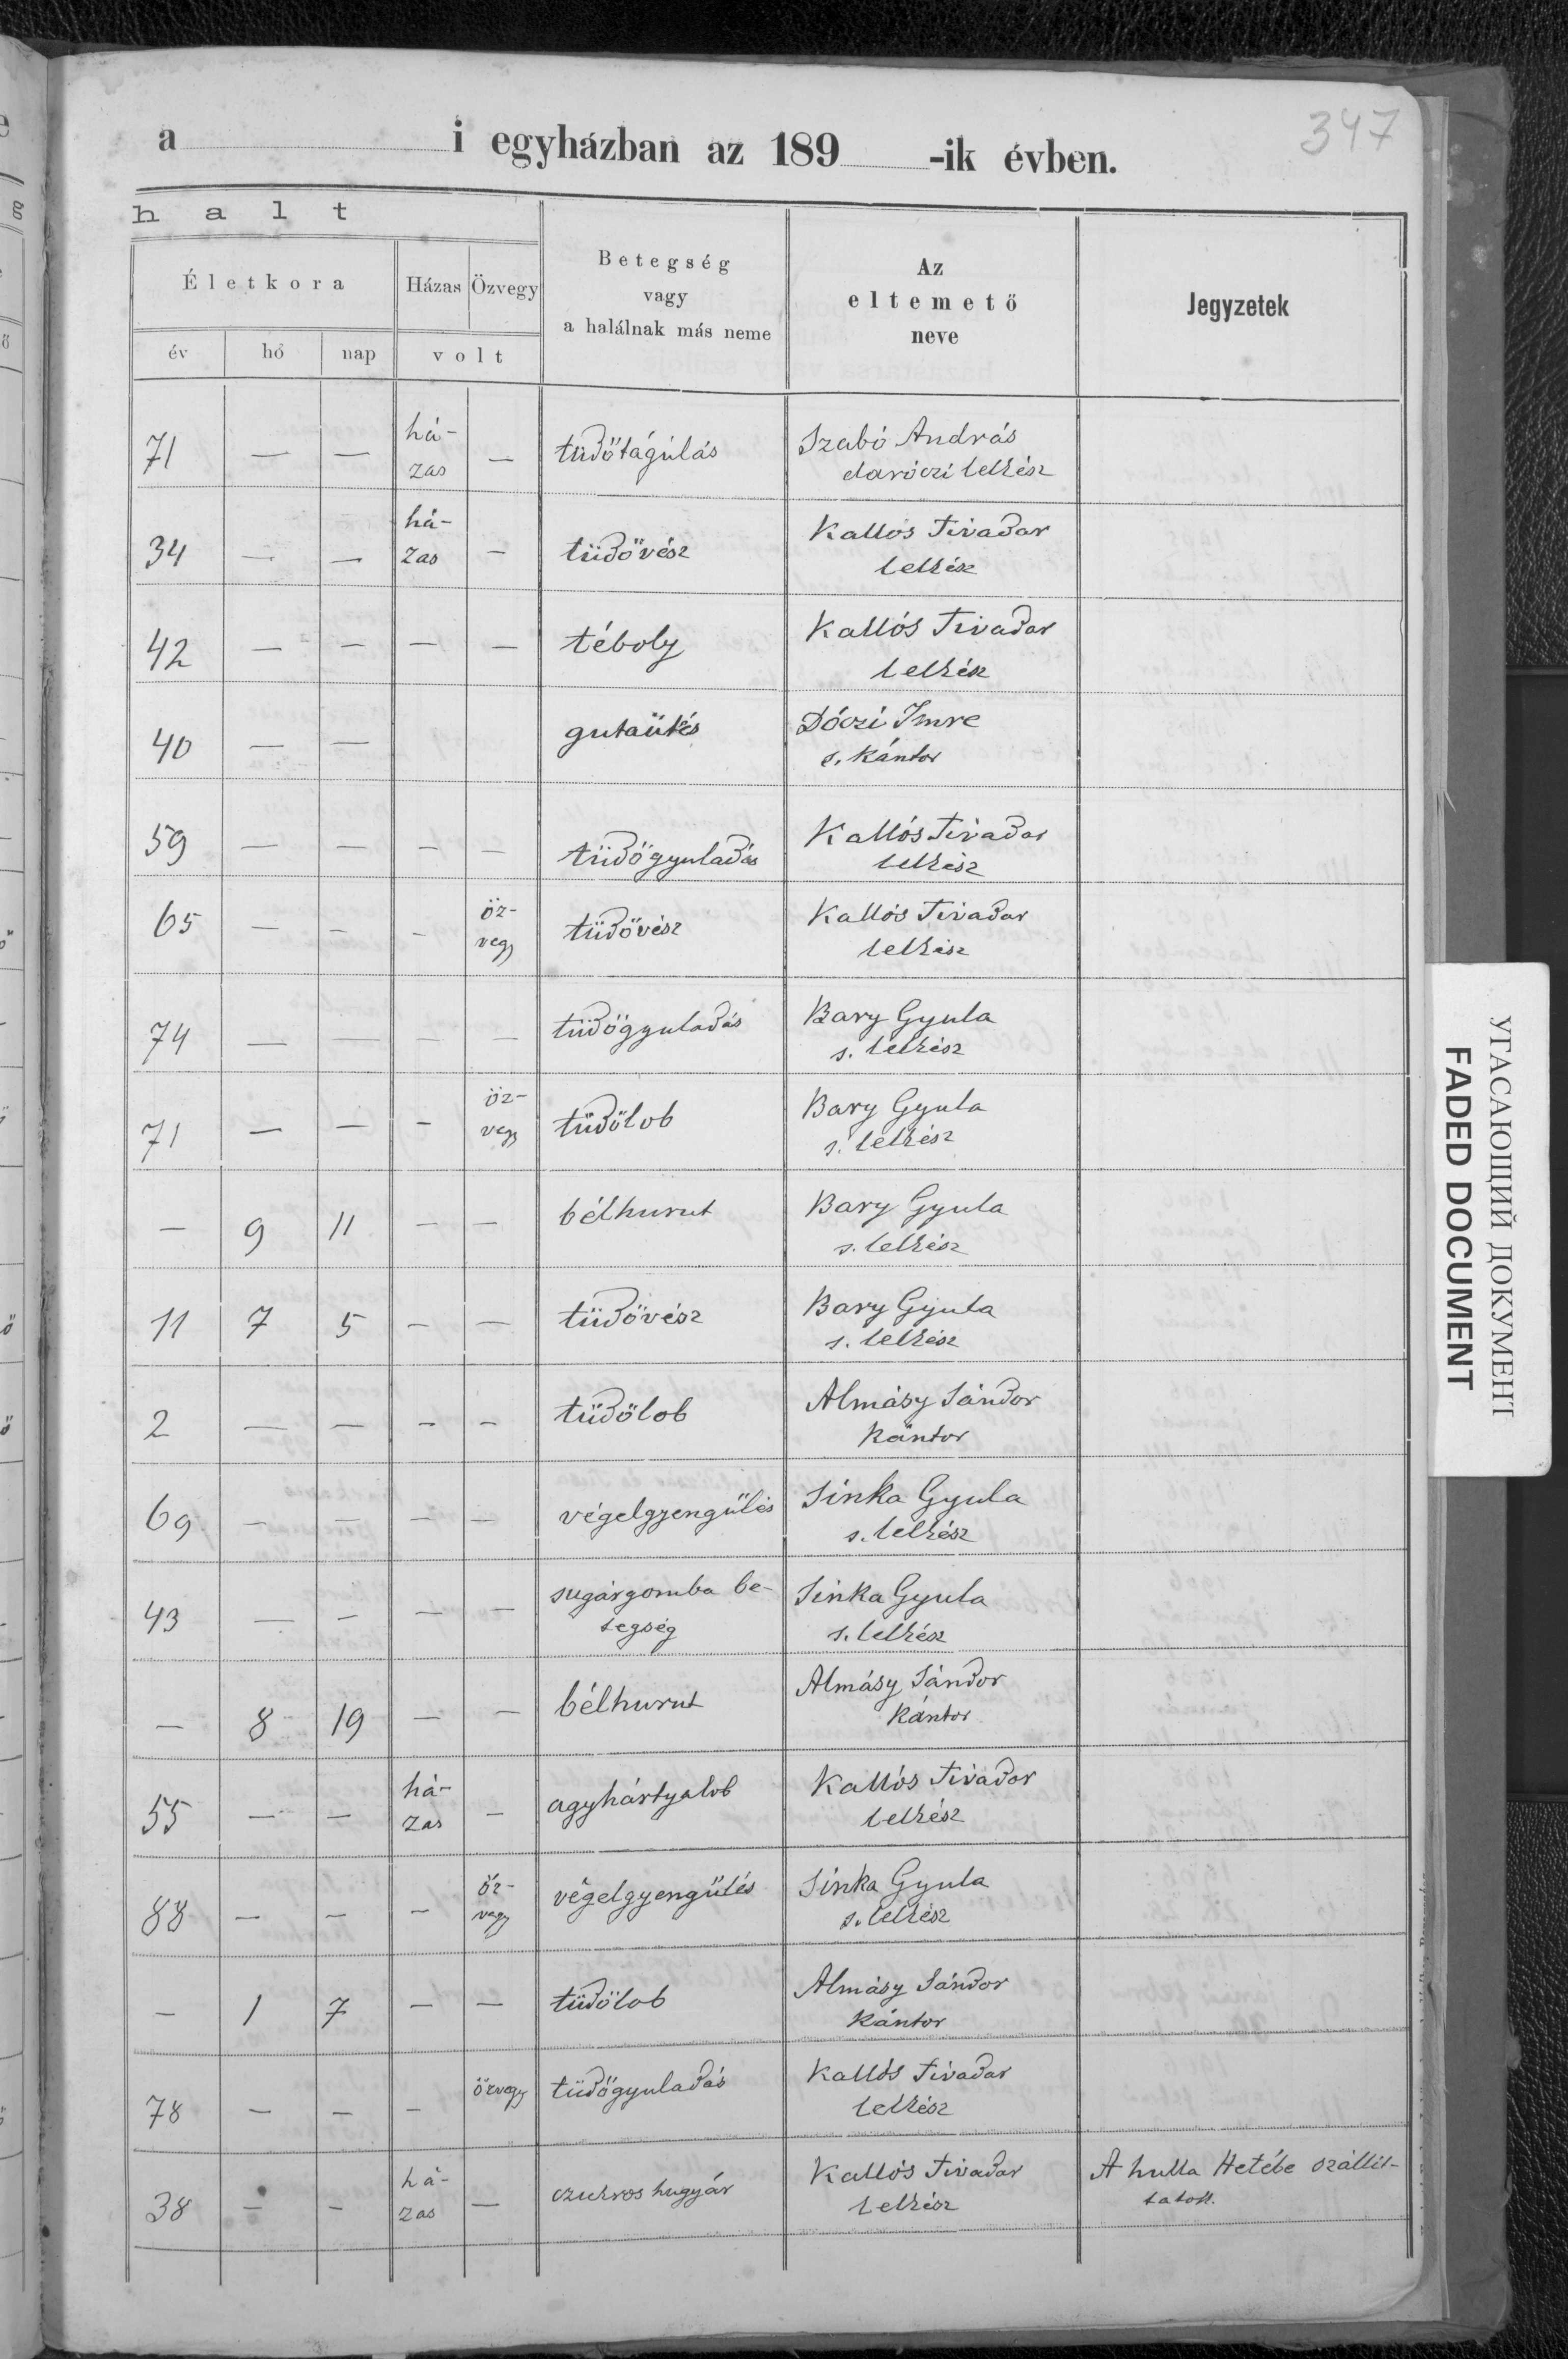 347
a i egyházban az 189 -ik évben.
halt
Életkora Házas Özvegy Betegség vagy a halálnak más neme Az eltemető neve Jegyzetek
év hó nap volt
71 — — há-
zas — tüdőtágúlás Szabó András
daróczi lelkész
34 — — há-
zas — tüdővész Kallos Tivadar
lelkész
42 — — — — téboly Kallós Tivadar
lelkész
40 — — gutaütés Dóczi Imre
s. kántor
59 — — — — tüdőgyuladás Kallós Tivadar
lelkész
65 — — — öz-
vegy tüdővész Kallós Tivadar
lelkész
74 — — — — tüdőgyuladás Bary Gyula
s. lelkész
71 — — — öz-
vegy tüdőlob Bary Gyula
s. lelkész
— 9 11 — — bélhurut Bary Gyula
s. lelkész
11 7 5 — — tüdővész Bary Gyula
s. lelkész
2 — — — — tüdőlob Almásy Sándor
kántor
69 — — — — végelgyengülés Sinka Gyula
s. lelkész
43 — — — — sugárgomba be-
tegség Sinka Gyula
s. lelkész
— 8 19 — — bélhurut Almásy Sándor
kántor
55 — — há-
zas — agyhártyalob Kallós Tivador
lelkész
88 — — — öz-
vegy végelgyengülés Sinka Gyula
s. lelkész
— 1 7 — — tüdőlob Almásy Sándor
kántor
78 — — — özvegy tüdőgyuladás Kallós Tivadar
lelkész
38 — — há-
zas — czukros hugyár Kallós Tivadar
lelkész A hulla Hetébe szállit-
tatott.
УГАСАЮЩИЙ ДОКУМЕНТ
FADED DOCUMENT